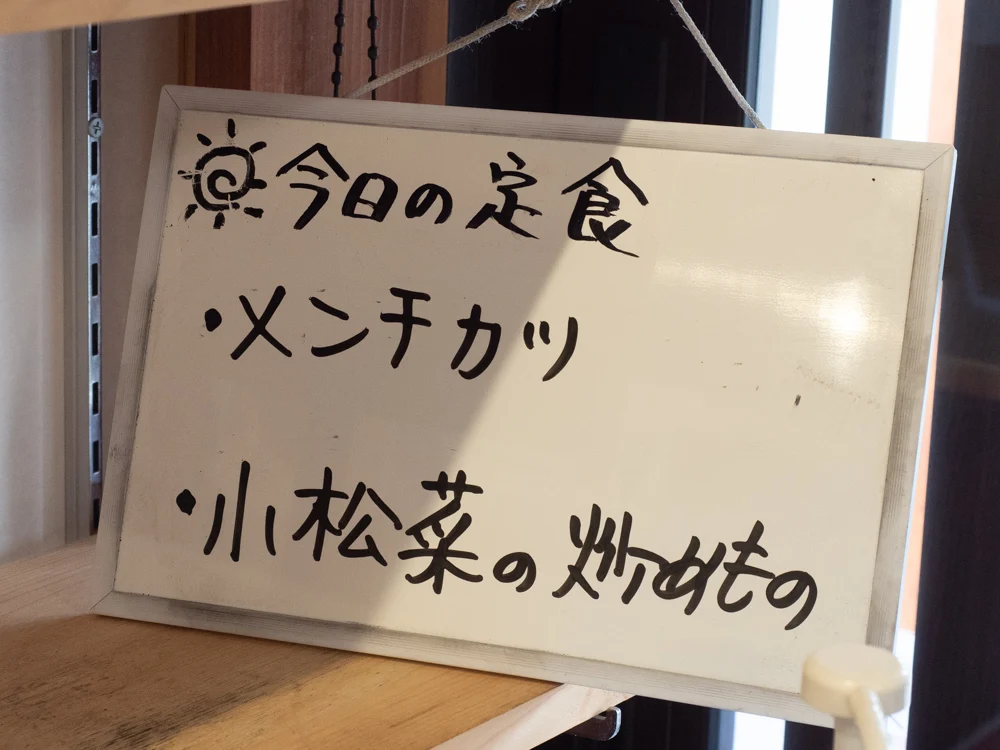 今日の定食
・メンチカツ
・小松菜の炒めもの